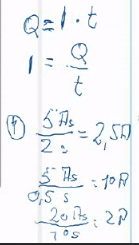 Q = I · t
I = Q / t
4) 5 As / 2 s = 2,5A
5 As / 0,5 s = 10A
20As / 10s = 2A